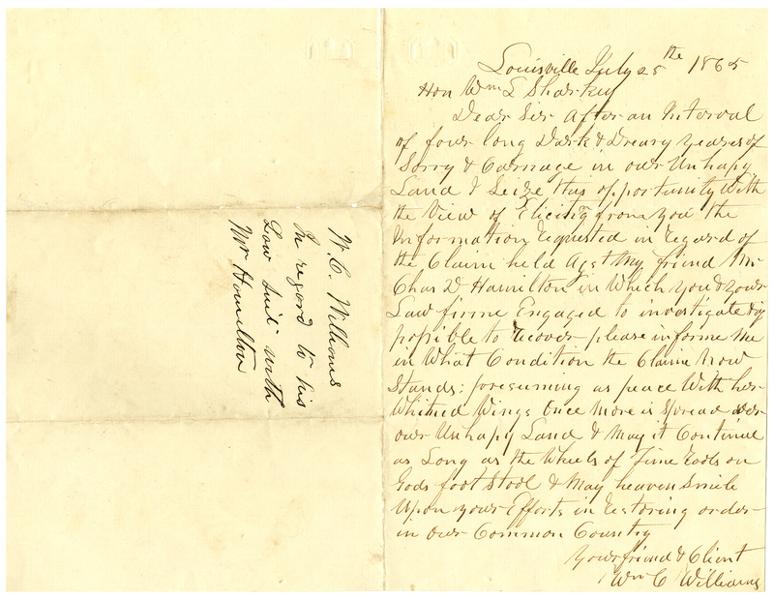 Louisville July 25th 1865
Hon Wm L Sharkey
Dear Sir After an Interval
of four long Dark & Dreary years of
Sorry & Carnage in our Unhapy
Land I Seize this opportunity With
the View of Eliciting from you the
Information Requested in Regard of
the Claim held Agst My friend Mr
Chas D Hamilton in Which you & your
Law firme Engaged to investigate & if
possible to Recover please informe Me
in What Condition the Claime Now
Stands: presuming as peace With her
Whitned Wings Once More is Spread over
our Unhapy Land & May it Continue
as Long as the Wheels of Time Rools on
Gods foot Stool & May heaven Smile
Upon your Efforts in Restoring order
in our Common Country
Your friend & Client
Wm C Williams
W. C. Williams
In regard to his
Law Suit with
Mr Hamilton